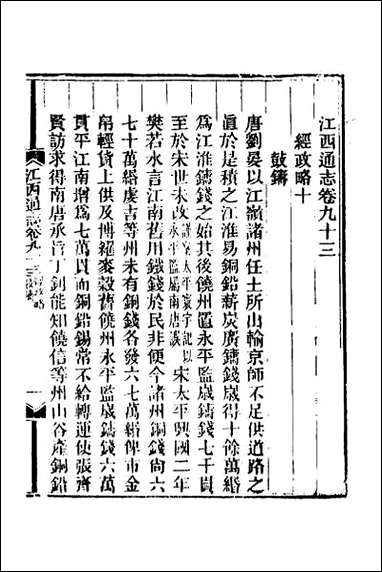 江西通志卷九十三
經政略十
鼓鑄
唐劉晏以江嶺諸州任土所出輸京師不足供道路之
直於是積之江淮易銅鉛薪炭廣鑄錢歲得十餘萬緡
爲江淮鑄錢之始其後饒州置永平監歲鑄錢七千貫
至於宋世未改謹案太平寰宇記以永平監屬南唐誤宋太平興國二年
樊若水言江南舊用鐵錢於民非便今諸州銅錢尚六
七十萬緡虔吉等州未有銅錢各發六七萬緡俾市金
帛輕貨上供及博糴麥穀舊饒州永平監歲鑄錢六萬
貫平江南增爲七萬貫而銅鉛錫常不給轉運使張齊
賢訪求得南唐承旨丁釗能知饒信等州山谷產銅鉛
江西通志卷九